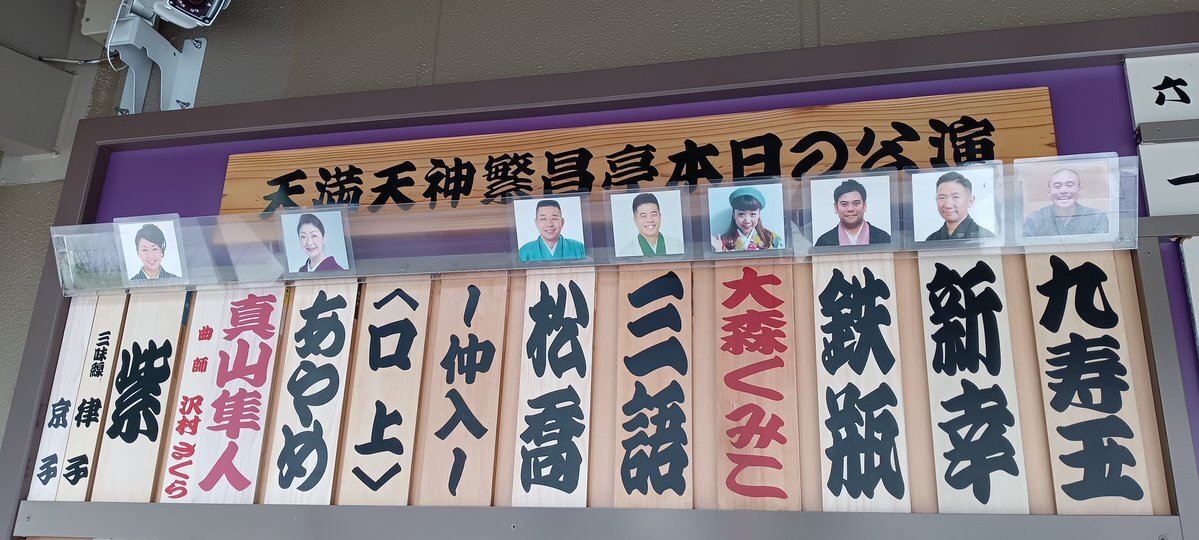 天満天神繁昌亭本日の公演
九寿玉
新幸
鉄瓶
大森くみこ
三語
松喬
〜仲入〜
〈口上〉
あやめ
真山隼人
曲師 沢村さくら
紫
三味線 律子
京子
六
一